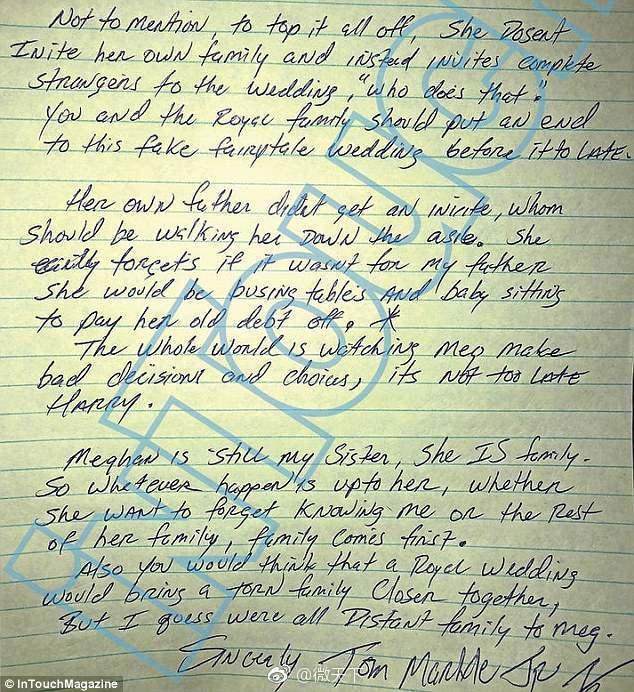 Not to mention, to top it all off She Dosent
Inite her own family and instead invites complete
strangers to the wedding, "who does that."
You and the Royal family should put an end
to this fake fairytale wedding before it to LATE.
Her own father didnt get an inivite, whom
should be walking her Down the asle. She
forgets if it wasnt for my father
she would be busing tables AND baby sitting
to pay her old debt off. *
The whole world is watching Meg make
bad decisions and choices, its not too LATE
HARRY.
Meghan is still my Sister, She IS family.
So whatever happen is upto her, whether
she want to forget knowing me or the Rest
of her family, family comes first.
Also you would think that a Royal Wedding
would bring a torn family closer together,
But I guess were all Distant family to Meg.
Sincerly Tom Markle Jr
InTouch
@微天下
© InTouchMagazine